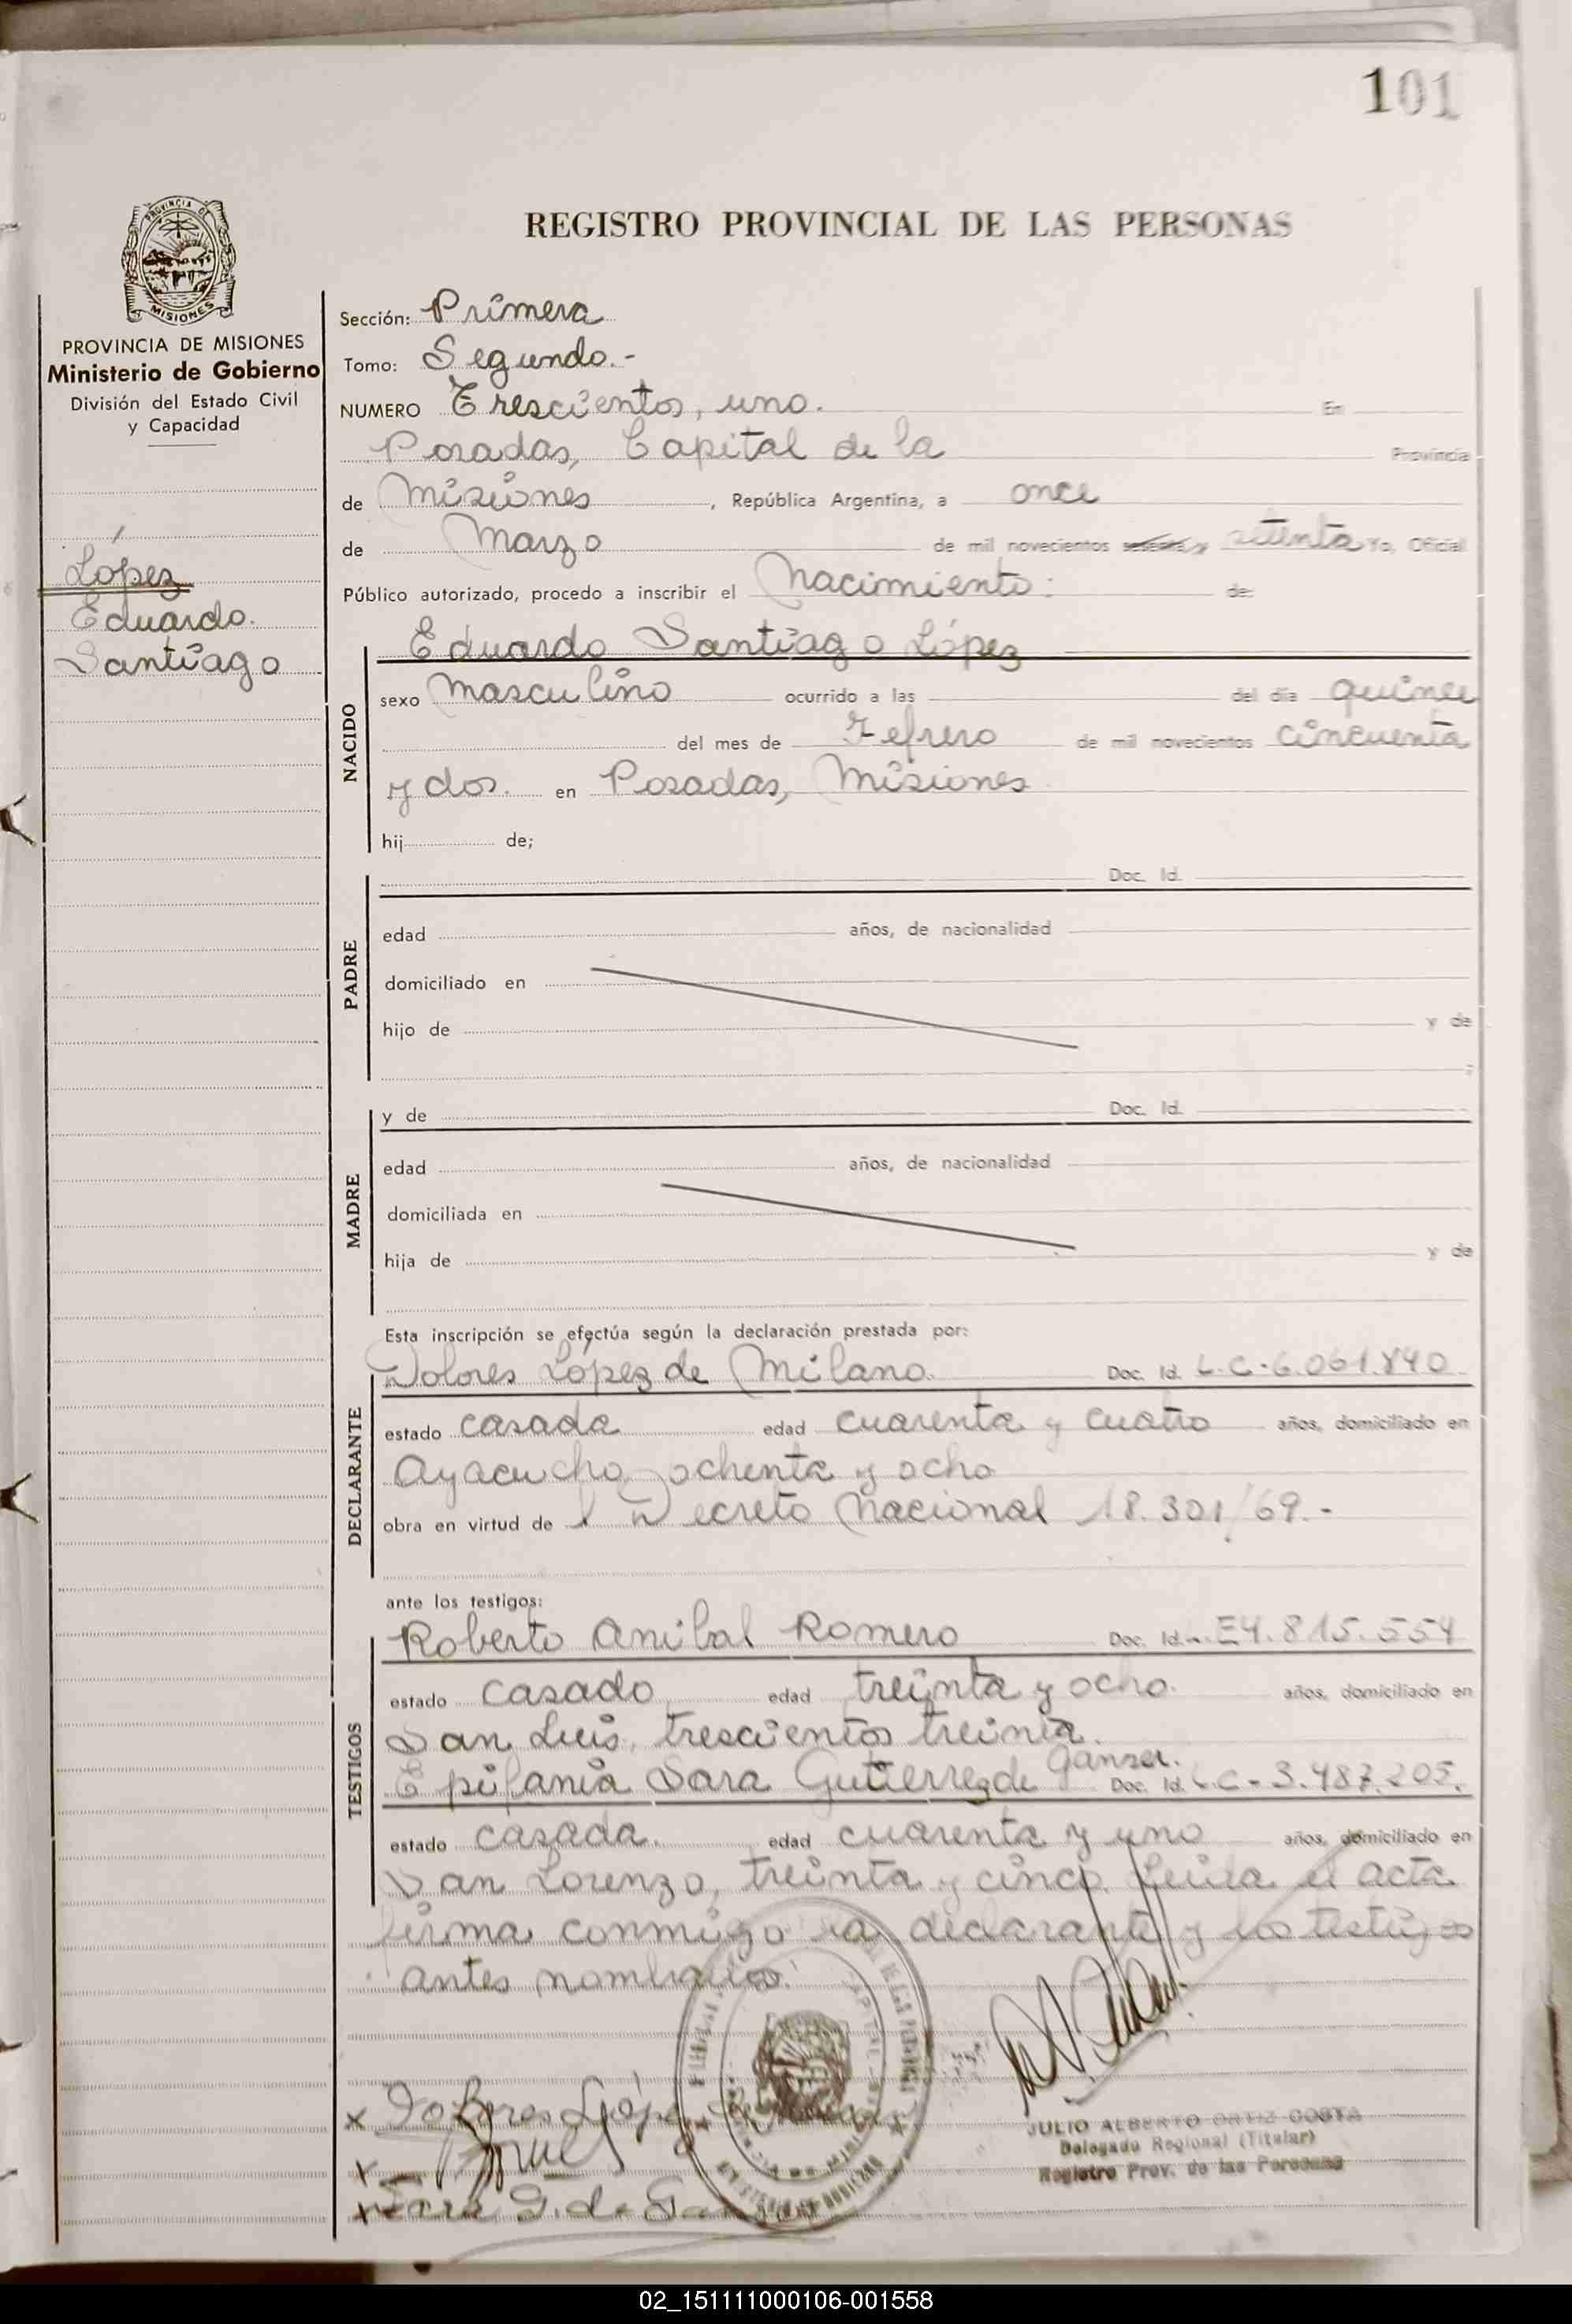 101
PROVINCIA DE MISIONES
REGISTRO PROVINCIAL DE LAS PERSONAS
PROVINCIA DE MISIONES
Ministerio de Gobierno
División del Estado Civil
y Capacidad
López
Eduardo.
Santiago
Sección: Primera
Tomo: Segundo.-
NUMERO Trescientos, uno. En
Posadas, Capital de la Provincia
de Misiones, República Argentina, a once
de Marzo de mil novecientos sesenta y setenta Yo, Oficial
Público autorizado, procedo a inscribir el Nacimiento: de:
NACIDO
Eduardo Santiago López
sexo Masculino ocurrido a las del día quince
del mes de Febrero de mil novecientos cincuenta
y dos. en Posadas, Misiones
hij de;
PADRE
Doc. Id.
edad años, de nacionalidad
domiciliado en
hijo de y de
MADRE
y de Doc. Id.
edad años, de nacionalidad
domiciliada en
hija de y de
Esta inscripción se efectúa según la declaración prestada por:
DECLARANTE
Dolores López de Milano. Doc. Id. L.C.6.061.840
estado casada edad cuarenta y cuatro años, domiciliado en
Ayacucho, ochenta y ocho
obra en virtud del Decreto Nacional 18.301/69.-
ante los testigos:
TESTIGOS
Roberto Anibal Romero Doc. Id. E4.815.554
estado casado edad treinta y ocho. años, domiciliado en
San Luis, trescientos treinta.
Epifania Sara Gutierrez de Ganser. Doc. Id. L.C-3.487.205.
estado casada. edad cuarenta y uno años, domiciliado en
San Lorenzo, treinta y cinco. Leida el acta
firma conmigo la declarante y los testigos
antes nombrados.
x Dolores López de
x
x Sara G. de
JULIO ALBERTO ORTIZ COSTA
Delegado Regional (Titular)
Registro Prov. de las Personas
02_151111000106-001558